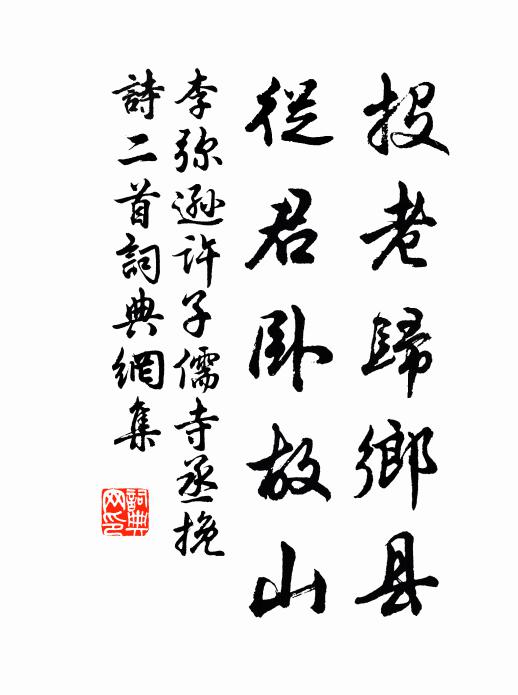 投老歸鄉县
從君卧故山
李弥遜许子儒寺丞挽
詩二首詞典網集
詞典
网印